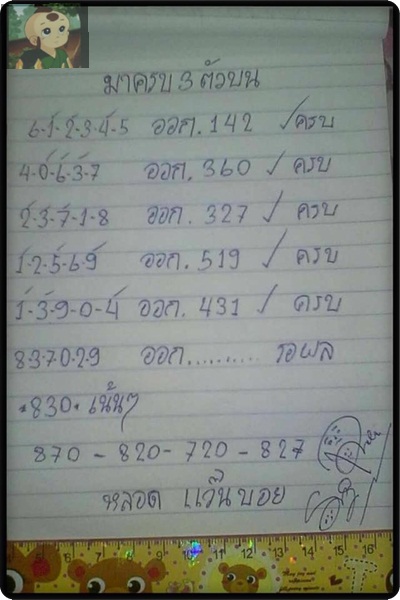 มาครบ 3 ตัวบน
6-1-2-3-4-5 ออก. 142 / ครบ
4-0-6-3-7 ออก. 360 / ครบ
2-3-7-1-8 ออก. 327 / ครบ
1-2-5-6-9 ออก. 519 / ครบ
1-3-9-0-4 ออก. 431 / ครบ
8-3-7-0-2-9 ออก.......... รอผล
•830• เน้นๆ
870 - 820 - 720 - 827
หลอด แว๊นบอย
5 6 7 8 9 10 11 12 13 14 15 16